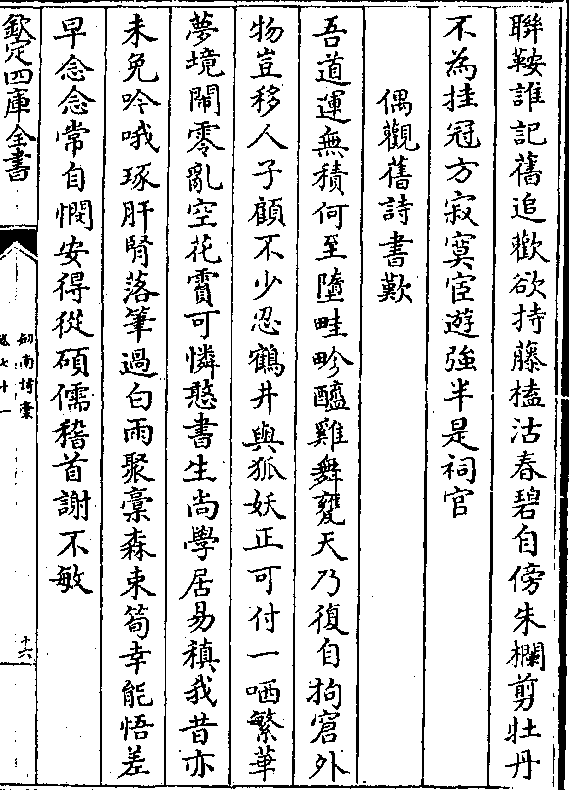 聯鞍誰記舊追歡欲持藤榼沽春碧自傍朱欄剪牡丹
不為挂冠方寂寞宦遊強半是祠官
偶觀舊詩書歎
吾道運無積何至墮畦畛醯雞舞甕天乃復自拘窘外
物豈移人子顧不少忍鶴井與狐妖正可付一哂繁華
夢境鬧零亂空花霣可憐憨書生尚學居易稹我昔亦
未免吟哦琢肝腎落筆過白雨聚稾森束筍幸能悟差
早念念常自憫安得從碩儒稽首謝不敏
欽定四庫全書
劍南詩稾
卷七十一
十六